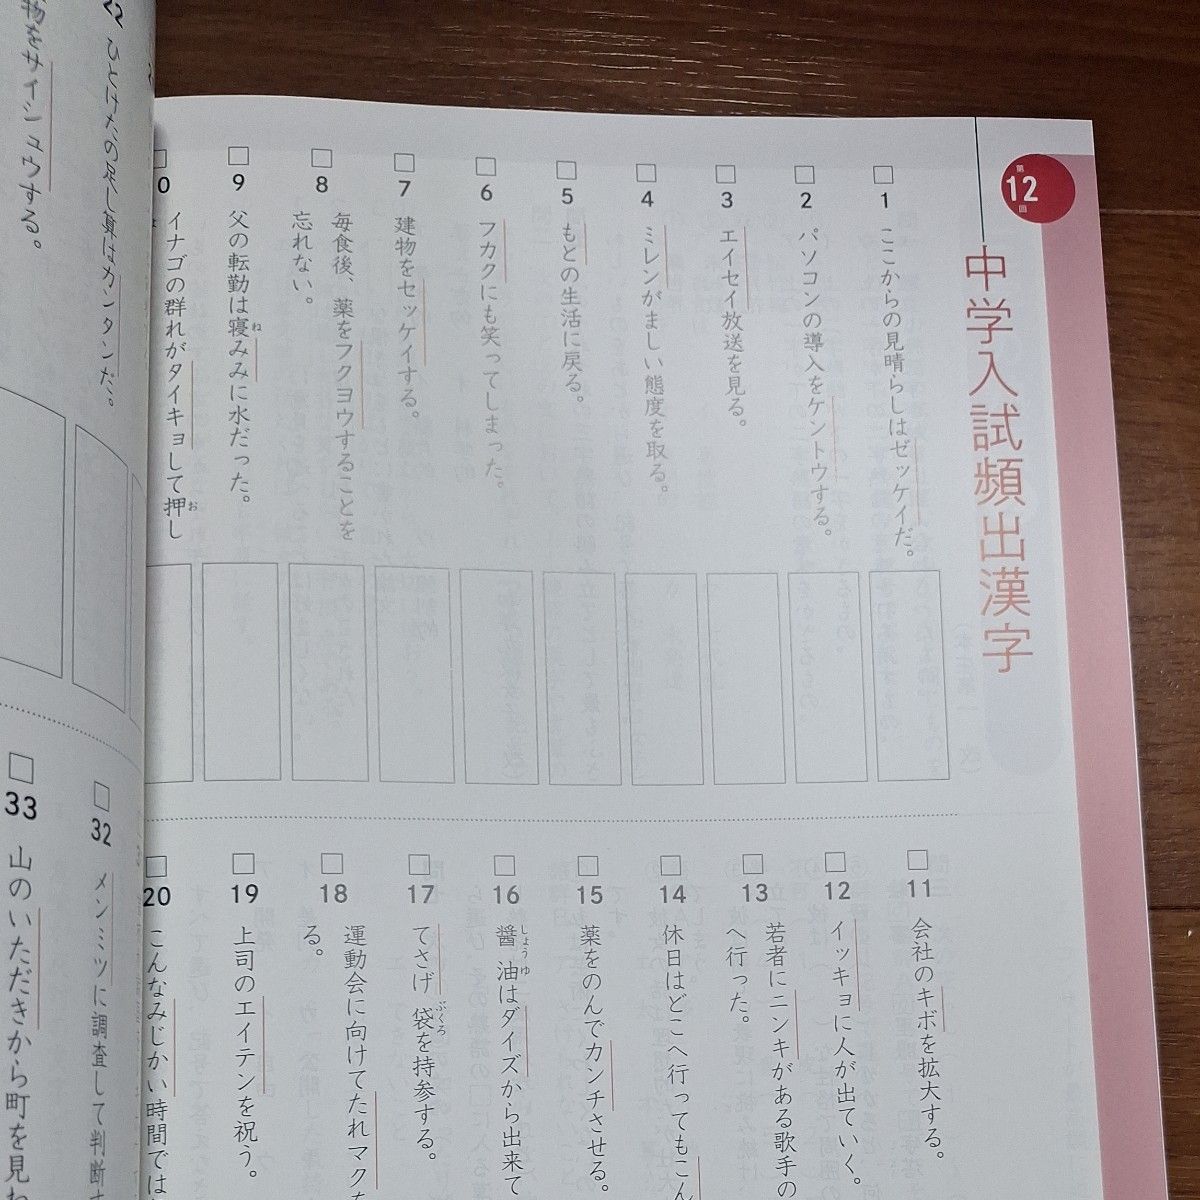 第12回
中学入試頻出漢字
1 ここからの見晴らしはゼッケイだ。
2 パソコンの導入をケントウする。
3 エイセイ放送を見る。
4 ミレンがましい態度を取る。
5 もとの生活に戻る。
6 フカクにも笑ってしまった。
7 建物をセッケイする。
8 毎食後、薬をフクヨウすることを
忘れない。
9 父の転勤は寝ねみみに水だった。
0 イナゴの群れがタイキョして押おし
11 会社のキボを拡大する。
12 イッキョに人が出ていく。
13 若者にニンキがある歌手の
へ行った。
14 休日はどこへ行ってもこん
15 薬をのんでカンチさせる。
16 醤油しょうゆはダイズから出来て
17 てさげ袋ぶくろを持参する。
18 運動会に向けてたれマクを
る。
19 上司のエイテンを祝う。
20 こんなみじかい時間では
22 ひとけたの足し算はカンタンだ。
物をサイシュウする。
32 メンミツに調査して判断
33 山のいただきから町を見